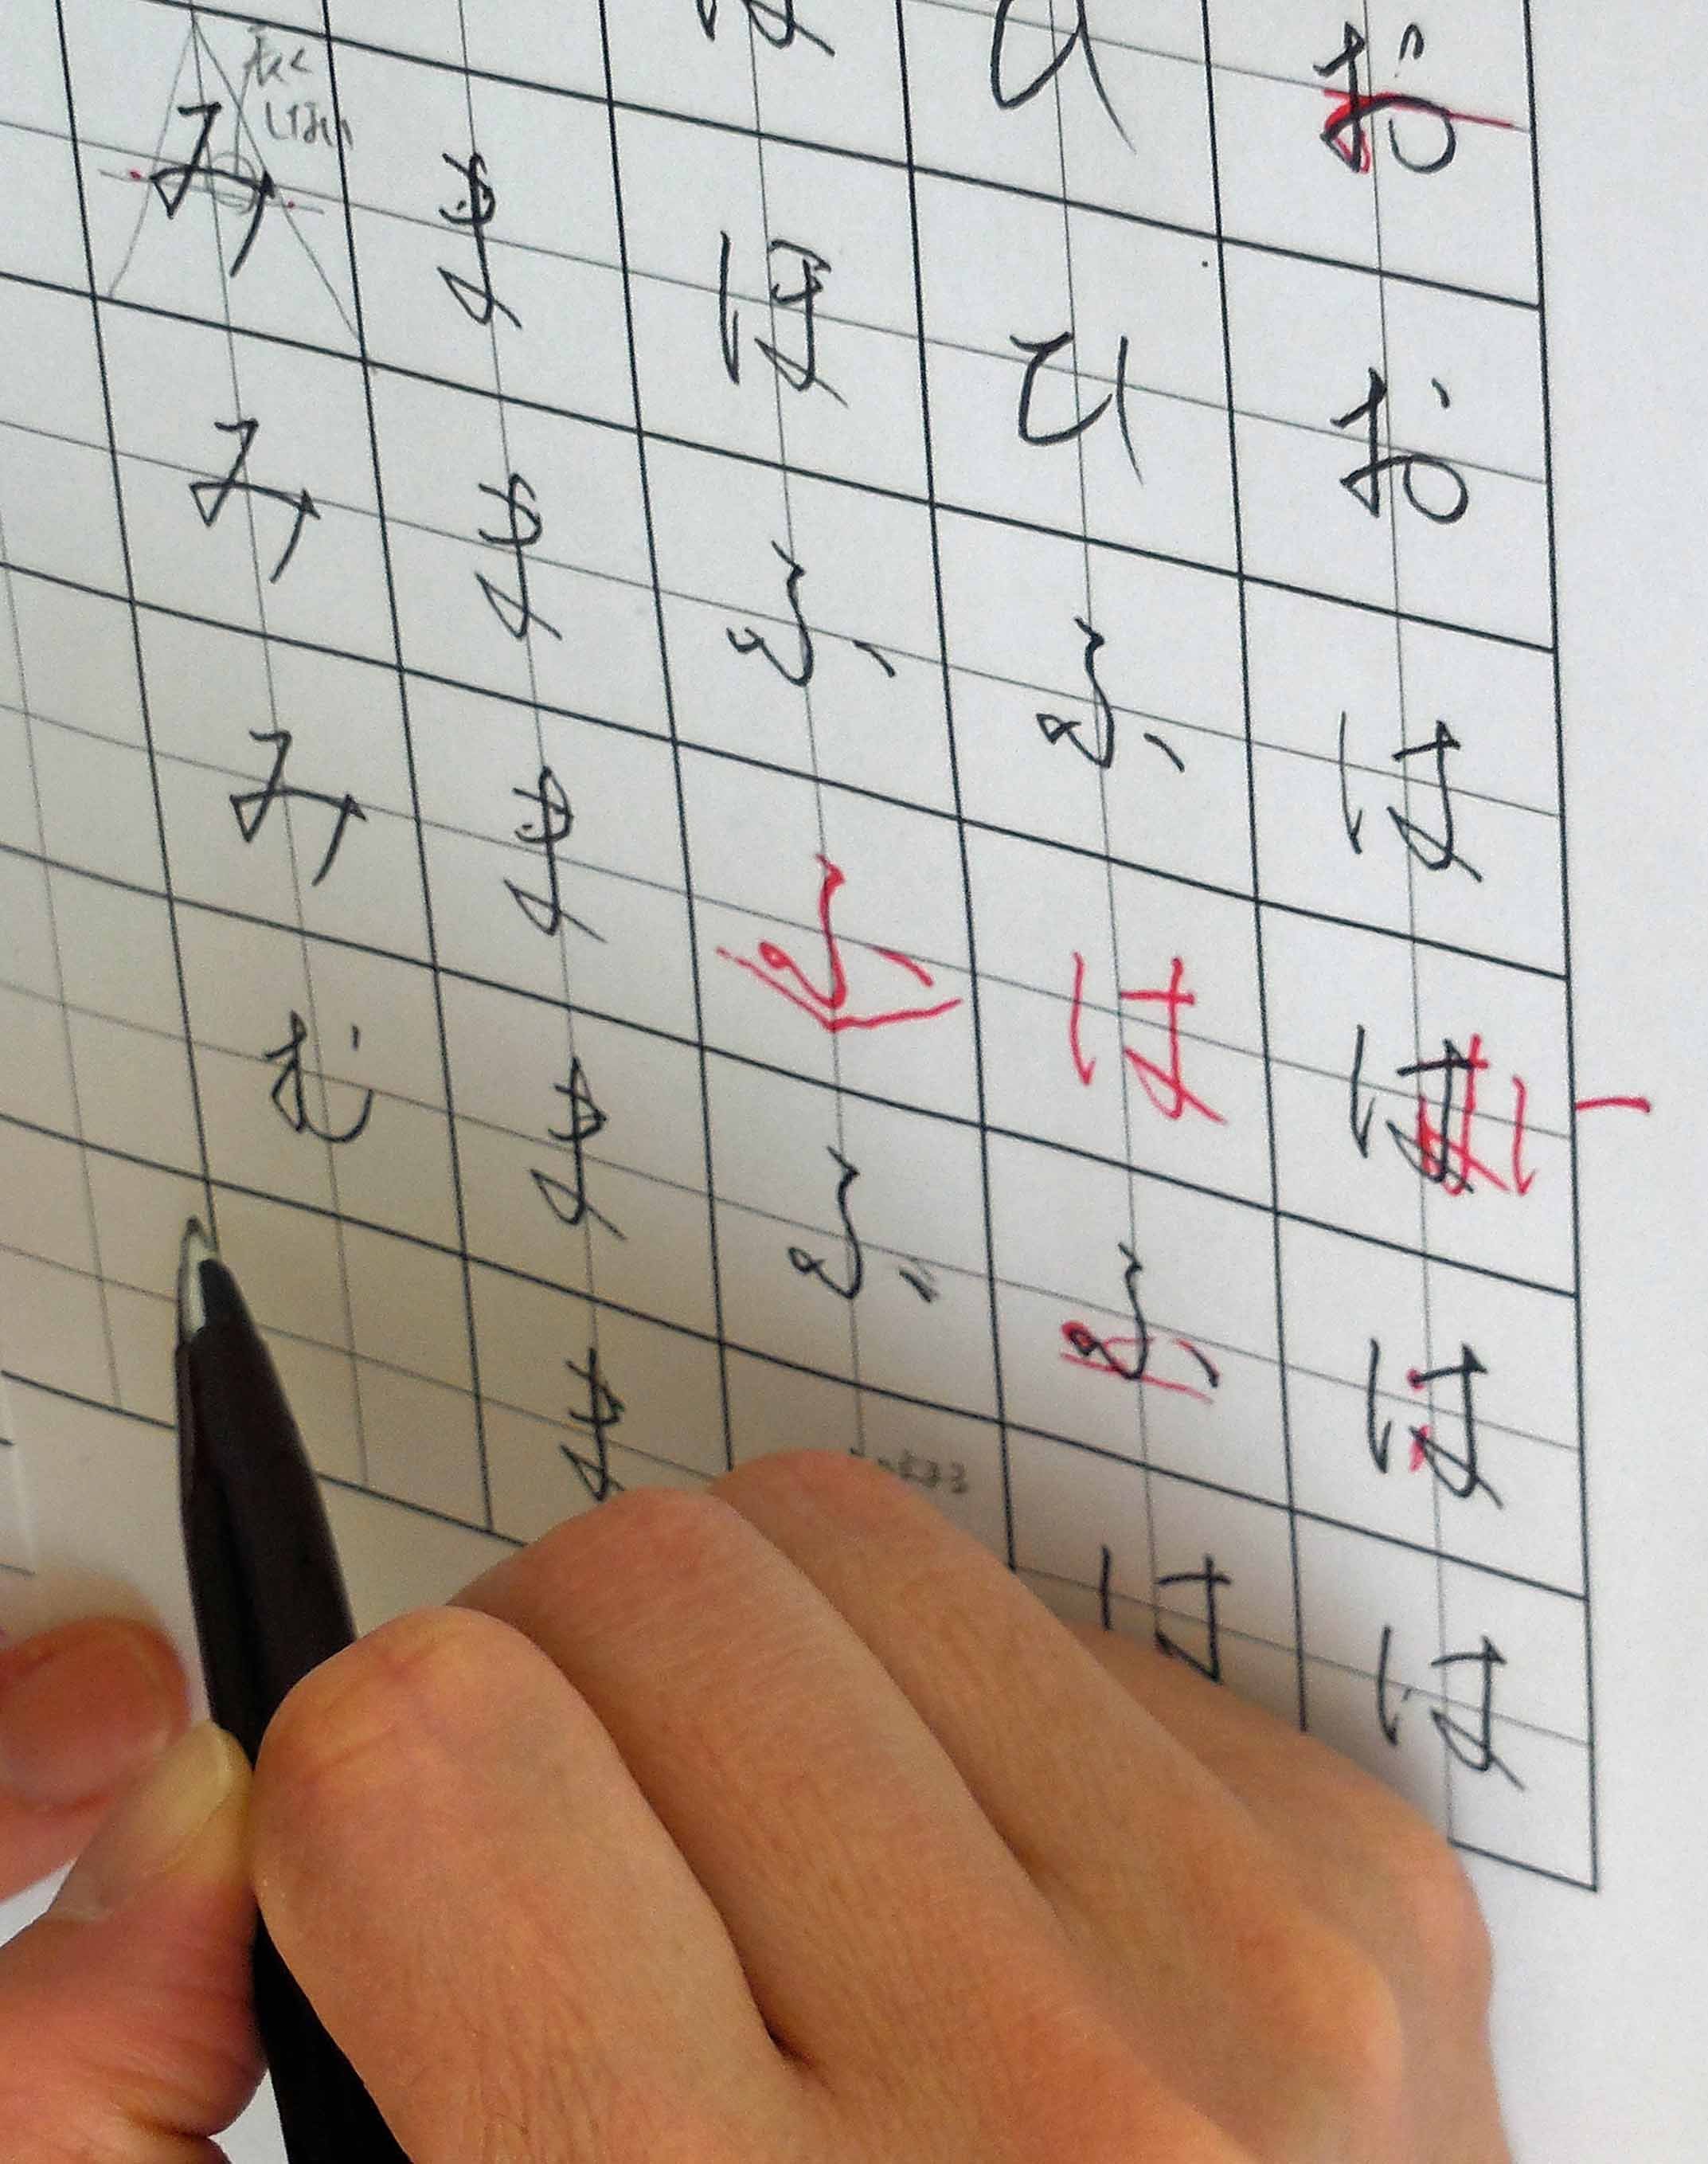 おおははは は
ひひふはふは
ほふふふ
ままままま
みみみむ
長く
しない